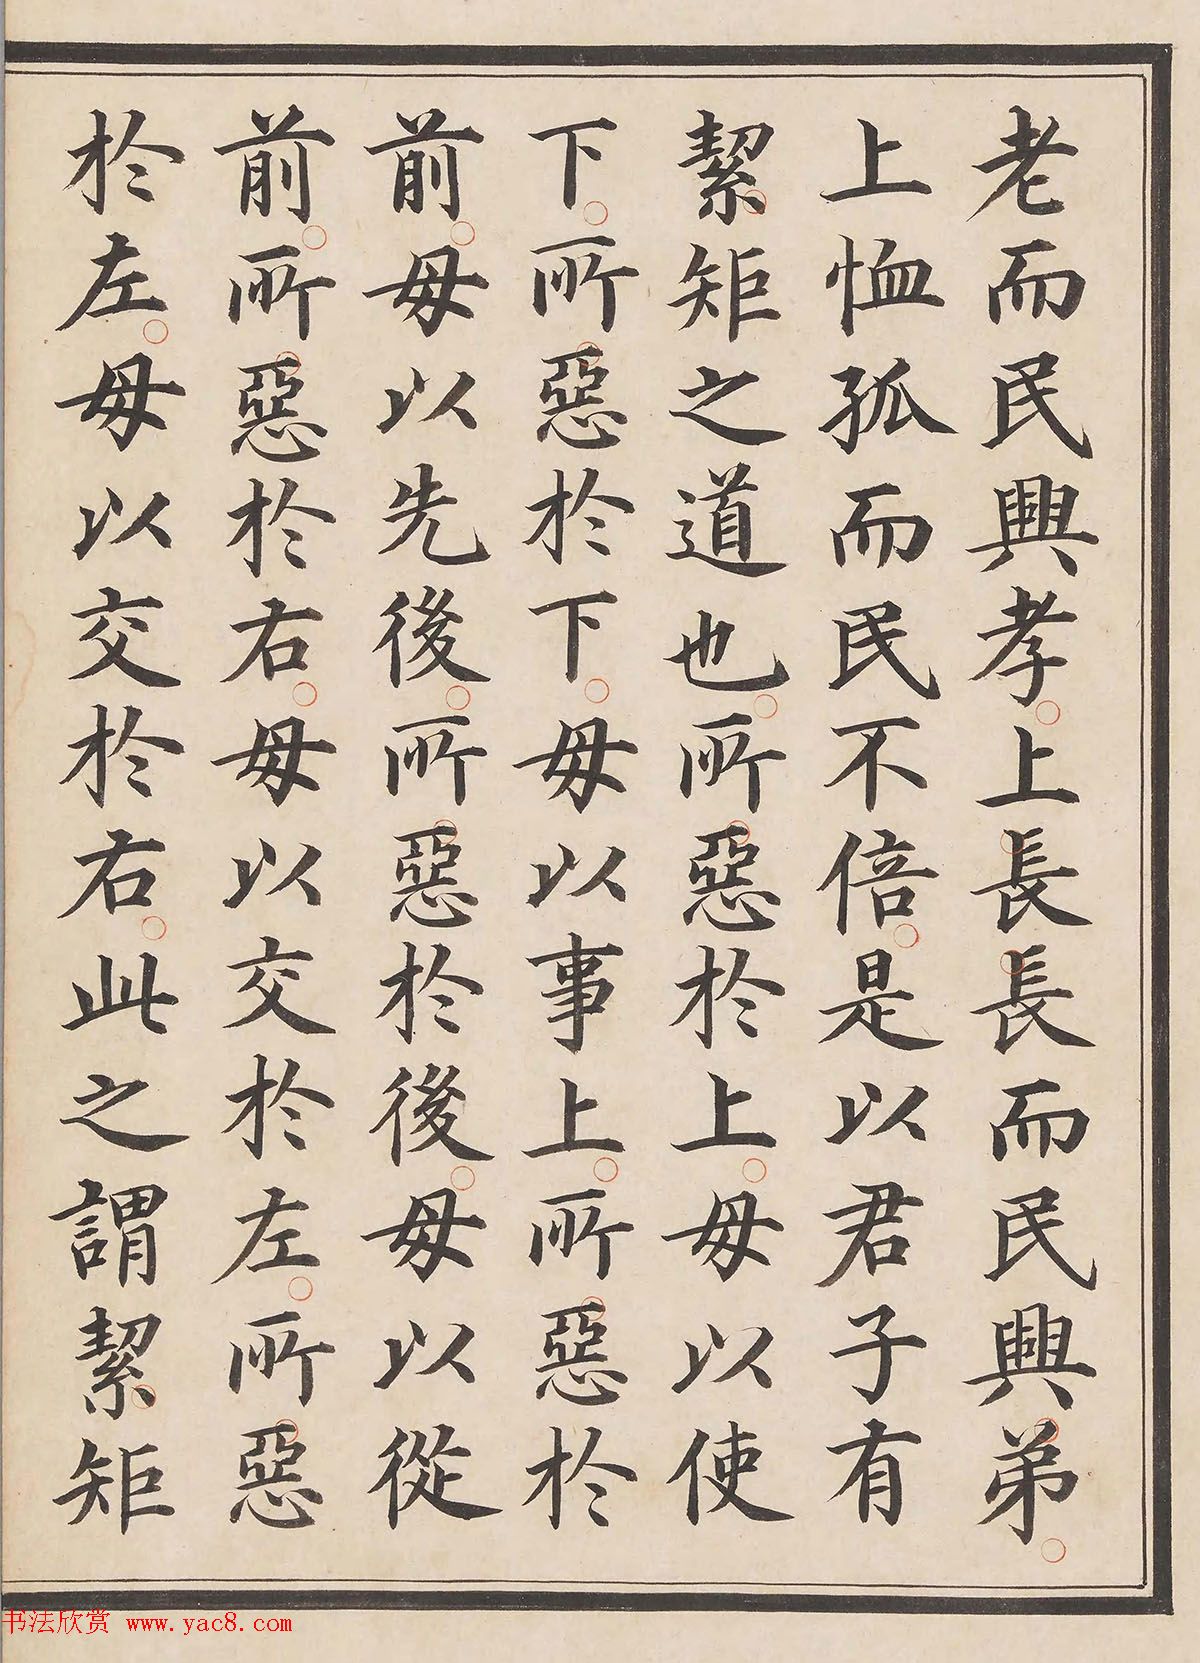 老而民興孝上長長而民興弟
上恤孤而民不倍是以君子有
絜矩之道也所惡於上毋以使
下所惡於下毋以事上所惡於
前毋以先後所惡於後毋以從
前所惡於右毋以交於左所惡
於左毋以交於右此之謂絜矩
书法欣赏 www.yac8.com